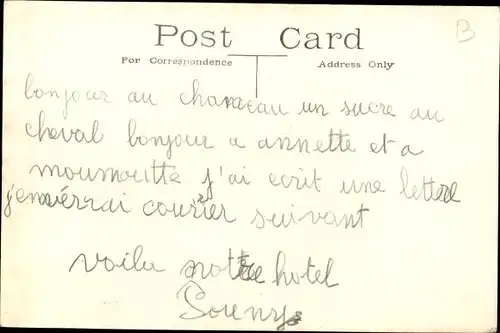 Post Card
For Correspondence
Address Only
B
bonjour au chameau un sucre au
cheval bonjour a annette et a
moumoutte j'ai ecrit une lettre
j'enverrai courier suivant
voila notre hotel